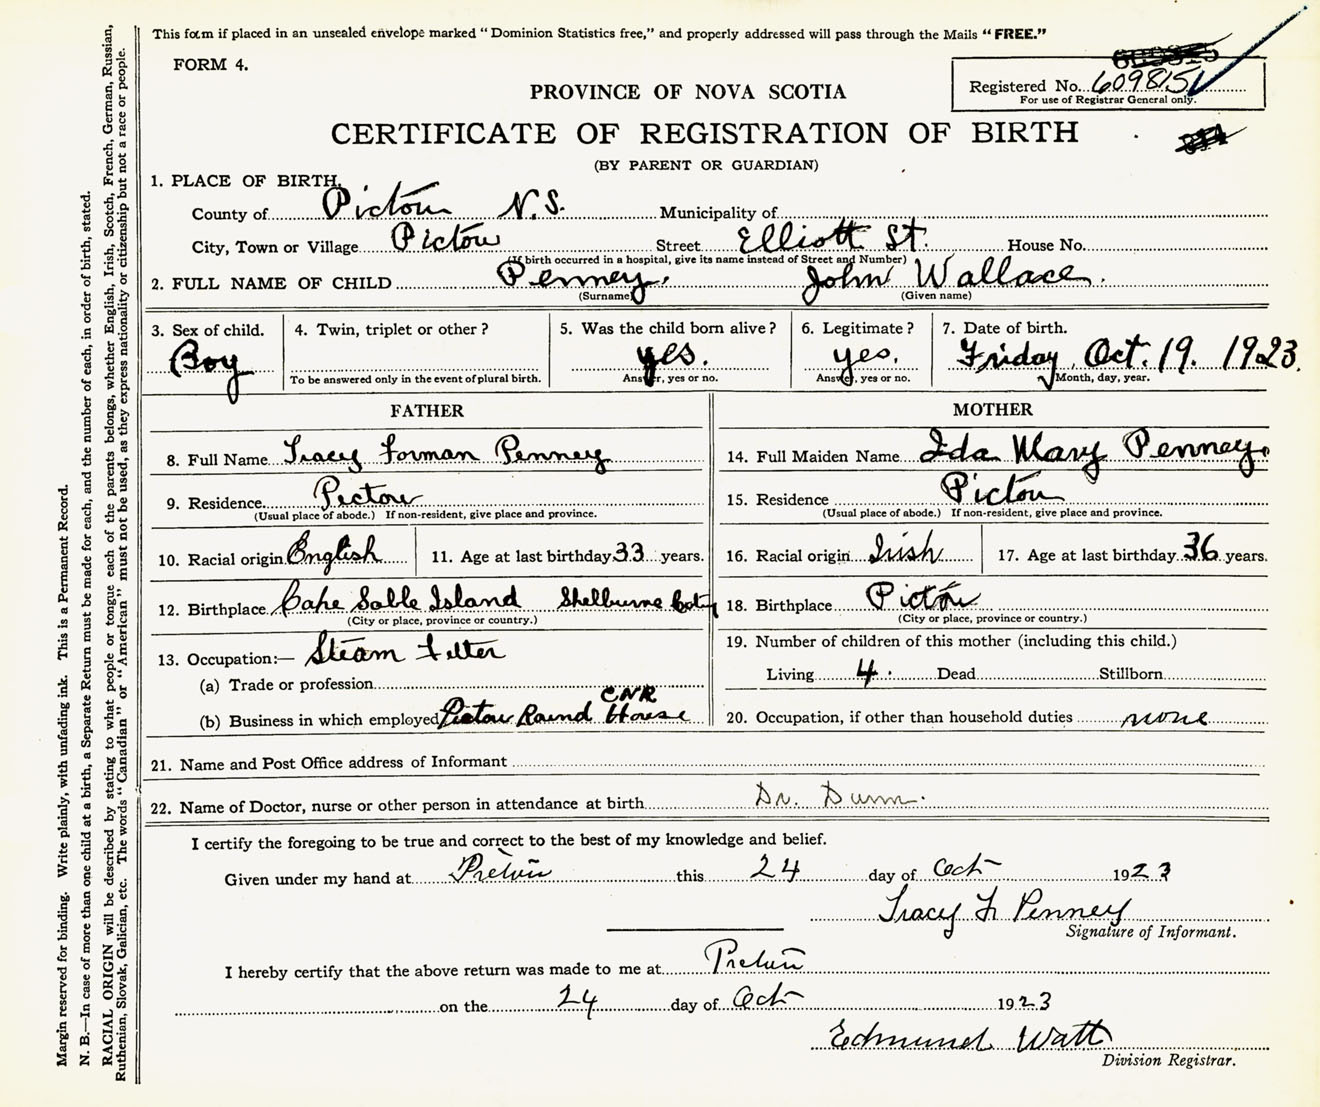 This form if placed in an unsealed envelope marked "Dominion Statistics free," and properly addressed will pass through the Mails "FREE."
FORM 4.
Registered No. 609815
For use of Registrar General only.
PROVINCE OF NOVA SCOTIA
CERTIFICATE OF REGISTRATION OF BIRTH
(BY PARENT OR GUARDIAN)
1. PLACE OF BIRTH.
County of Pictou N.S. Municipality of
City, Town or Village Pictou Street Elliott St. House No.
(If birth occurred in a hospital, give its name instead of Street and Number)
2. FULL NAME OF CHILD Penney, John Wallace.
(Surname) (Given name)
3. Sex of child. 4. Twin, triplet or other? 5. Was the child born alive? 6. Legitimate? 7. Date of birth.
Boy yes. yes. Friday, Oct. 19. 1923.
To be answered only in the event of plural birth. Answer, yes or no. Answer, yes or no. Month, day, year.
FATHER MOTHER
8. Full Name Tracey Forman Penney 14. Full Maiden Name Ida Mary Penney.
9. Residence Pictou 15. Residence Pictou
(Usual place of abode.) If non-resident, give place and province. (Usual place of abode.) If non-resident, give place and province.
10. Racial origin English 11. Age at last birthday 33 years. 16. Racial origin Irish 17. Age at last birthday 36 years.
12. Birthplace Cape Sable Island Shelburne Coty 18. Birthplace Pictou
(City or place, province or country.) (City or place, province or country.)
13. Occupation:— Steam Fitter 19. Number of children of this mother (including this child.)
(a) Trade or profession Living 4. Dead Stillborn
CNR
(b) Business in which employed Pictou Round House 20. Occupation, if other than household duties none
21. Name and Post Office address of Informant
22. Name of Doctor, nurse or other person in attendance at birth Dr. Dunn.
I certify the foregoing to be true and correct to the best of my knowledge and belief.
Given under my hand at Pictou this 24 day of Oct 1923
Tracy F. Penney
Signature of Informant.
I hereby certify that the above return was made to me at Pictou
on the 24 day of Oct 1923
Edmund Watt
Division Registrar.
Margin reserved for binding. Write plainly, with unfading ink. This is a Permanent Record.
N. B.—In case of more than one child at a birth, a Separate Return must be made for each, and the number of each, in order of birth, stated.
RACIAL ORIGIN will be described by stating to what people or tongue each of the parents belongs, whether English, Irish, Scotch, French, German, Russian,
Ruthenian, Slovak, Galician, etc. The words "Canadian" or "American" must not be used, as they express nationality or citizenship but not a race or people.